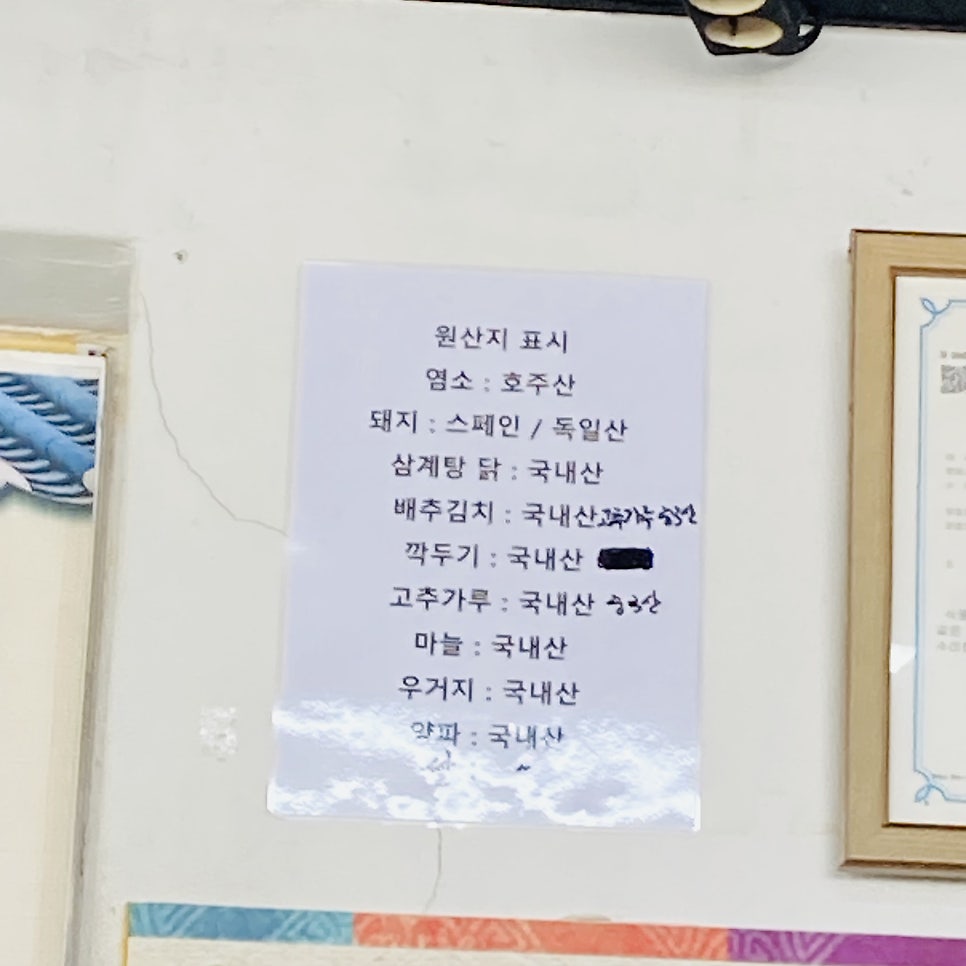 원산지 표시
염소 : 호주산
돼지 : 스페인 / 독일산
삼계탕 닭 : 국내산
배추김치 : 국내산 고추가루 중국산
깍두기 : 국내산
고추가루 : 국내산 중국산
마늘 : 국내산
우거지 : 국내산
양파 : 국내산